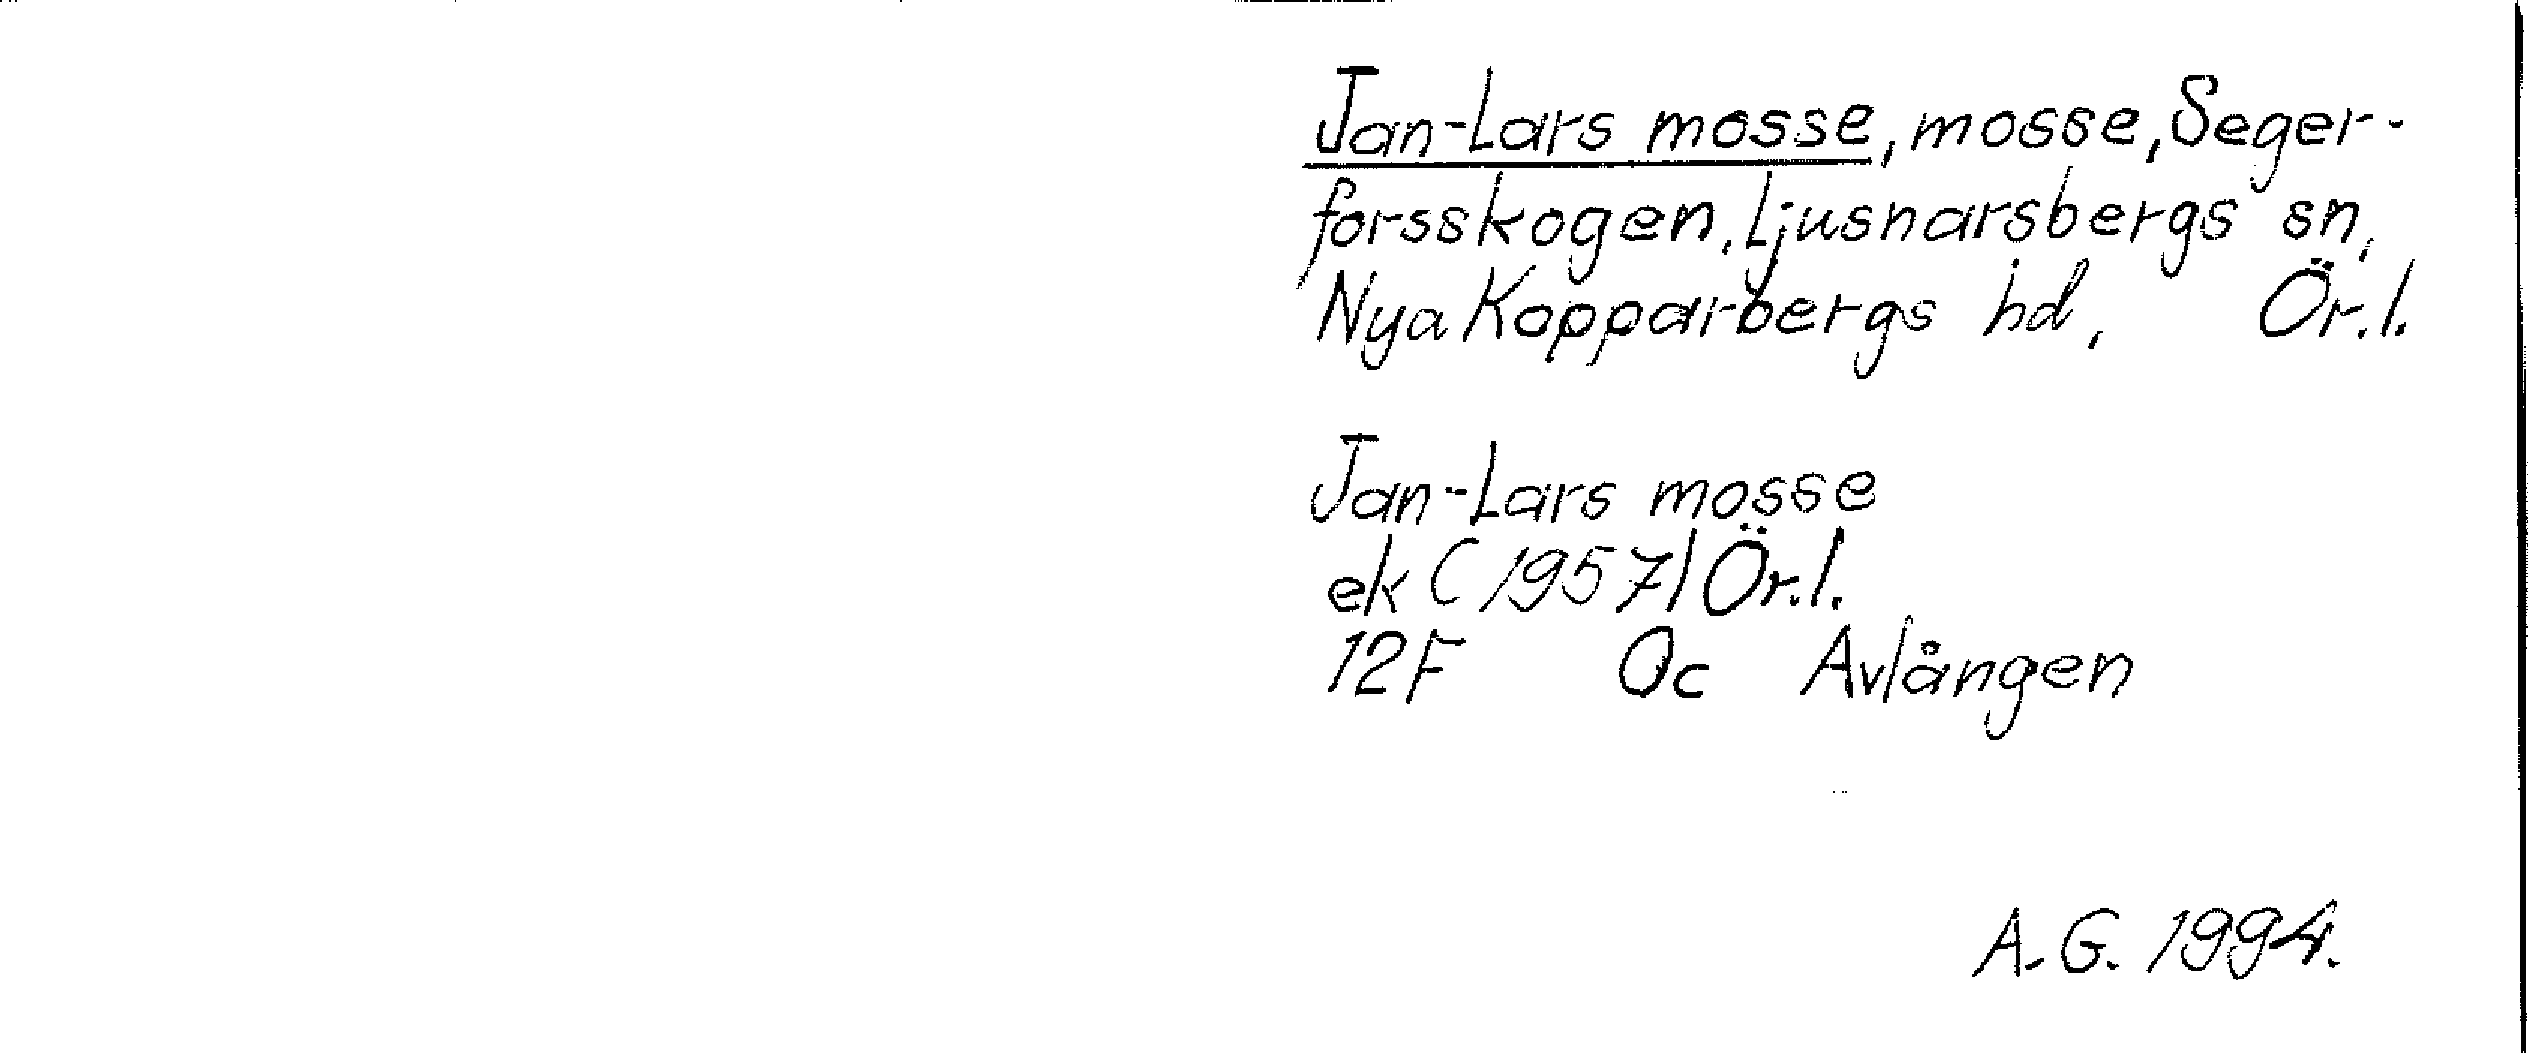 Jan-Lars mosse, mosse, Seger-
forsskogen, Ljusnarsbergs sn,
Nya Kopparbergs hd, Ör.l.
Jan-Lars mosse
ek (1957) Ör.l.
12F 0c Avlången
A.G. 1994.